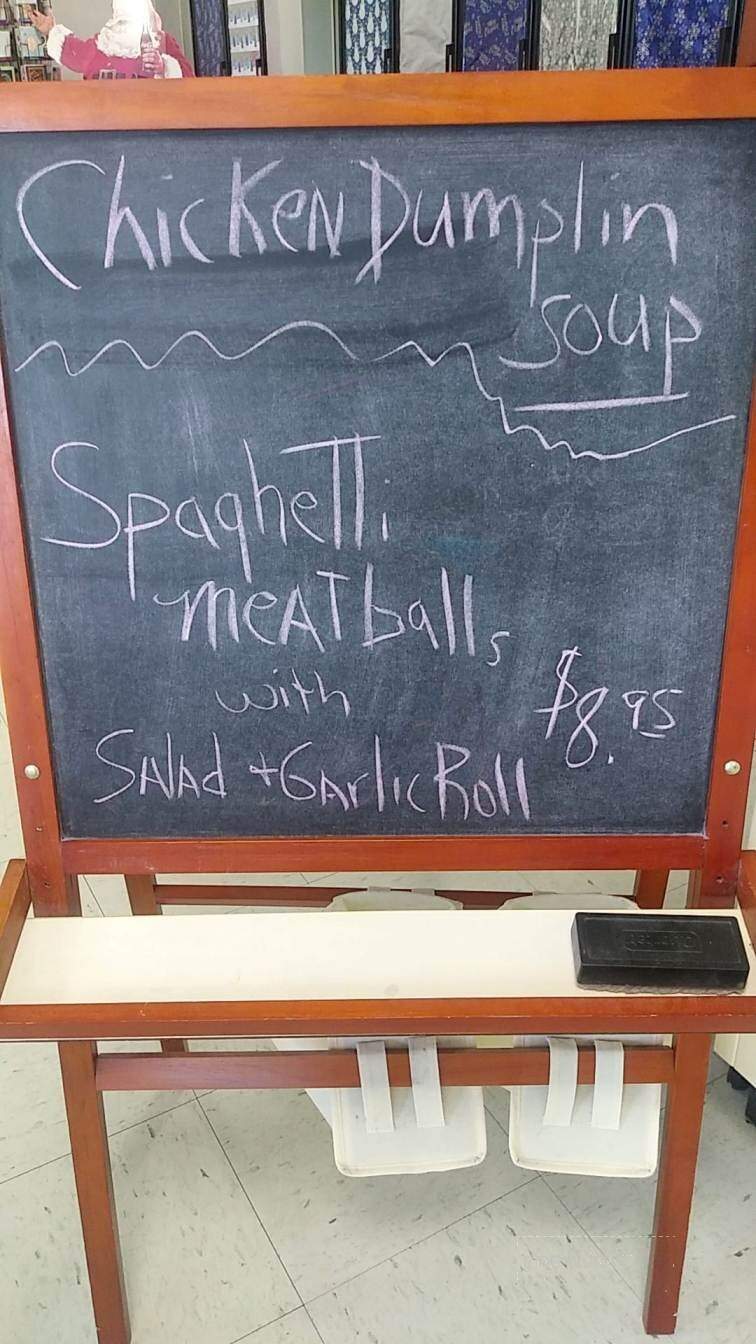 Chicken Dumplin
soup
Spaghetti
meatballs
with
$8.95
Salad + Garlic Roll